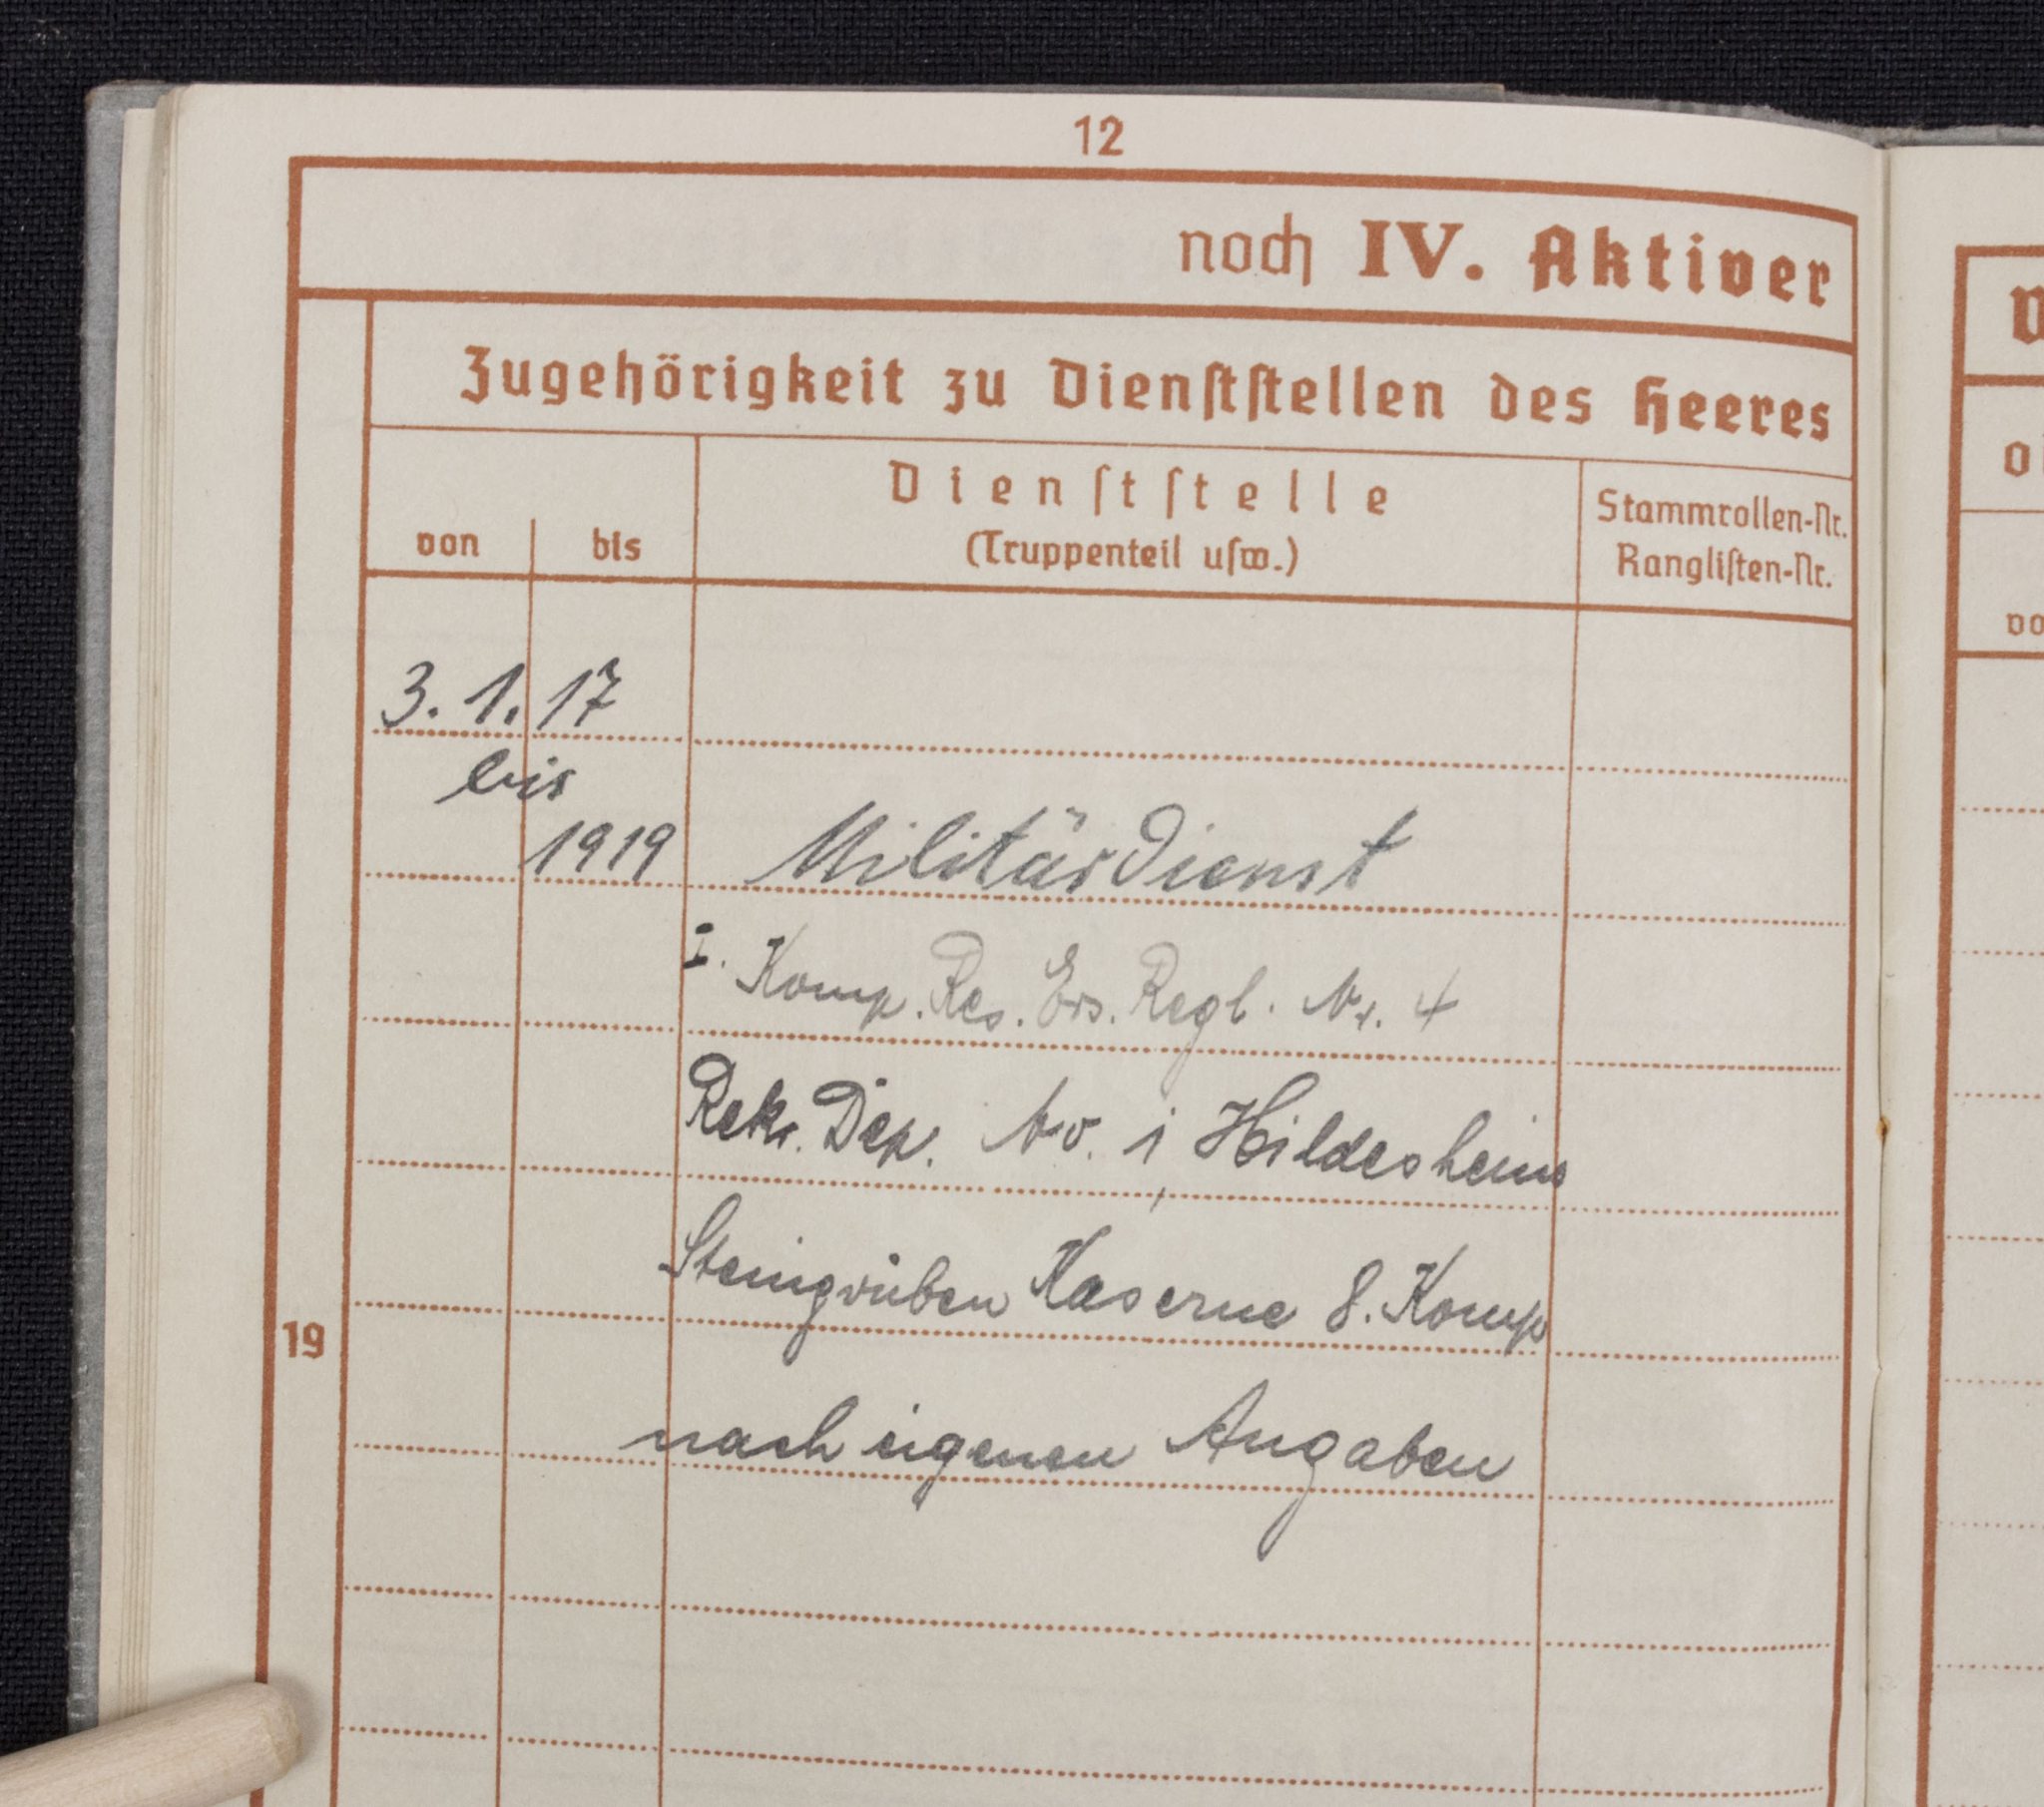 12
noch IV. Aktiver
Zugehörigkeit zu Dienſtſtellen des Heeres
von
bis
Dienſtſtelle
(Truppenteil uſw.)
Stammrollen-Nr.
Rangliſten-Nr.
3. 1. 17
bis
1919
Militärdienst
I. Komp. Res. Ers. Regl. Nr. 4
Rekr. Dep. No. 1 Hildesheim
Steingruben Kaserne 8. Komp
19
nach eigenen Angaben